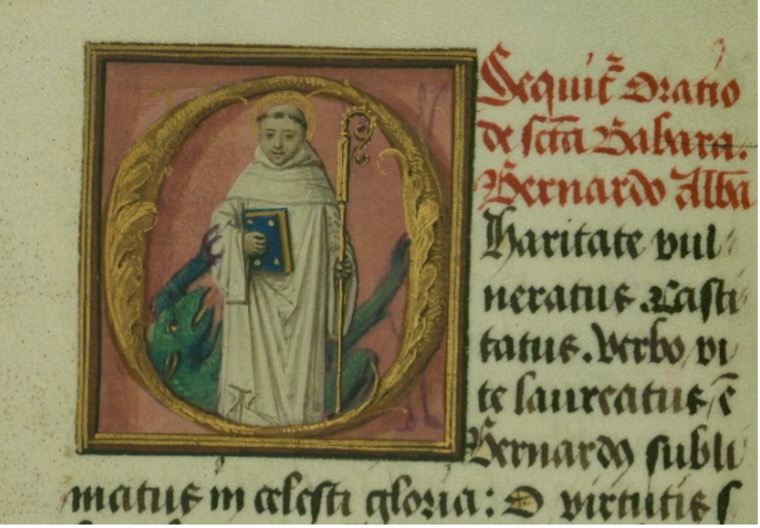 Sequit̃ Oratio
de sctã Babara.
Bernardo Albã
haritate vul
neratus. Casti
tatus. verbo vi
te laureatus / ẽ
Bernardꝰ subli
matus in celesti gloria: O virtutis s